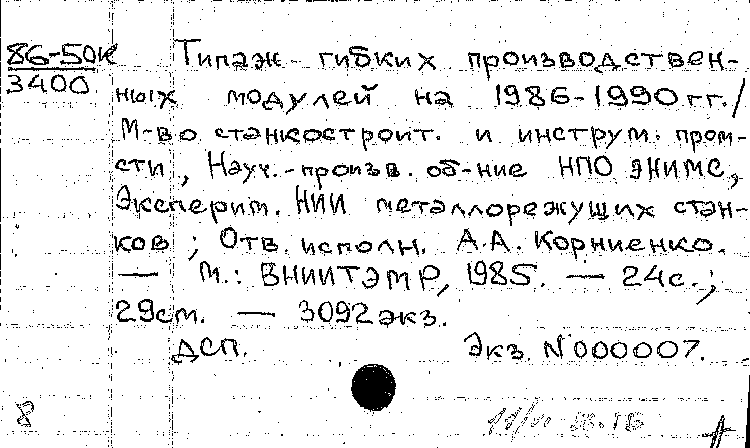 86-50к
3400
Типаж гибких производствен-
ных модулей на 1986-1990 гг./
М-во станкостроит. и инструм. пром-
сти, Науч.-произв. об-ние НПО ЭНИМС,
Эксперим. НИИ металлорежущих стан-
ков; Отв. исполн. А.А. Корниенко.
— М.: ВНИИТЭМР, 1985. — 24с.;
29см. — 3092 экз.
ДСП. Экз. N000007.
8